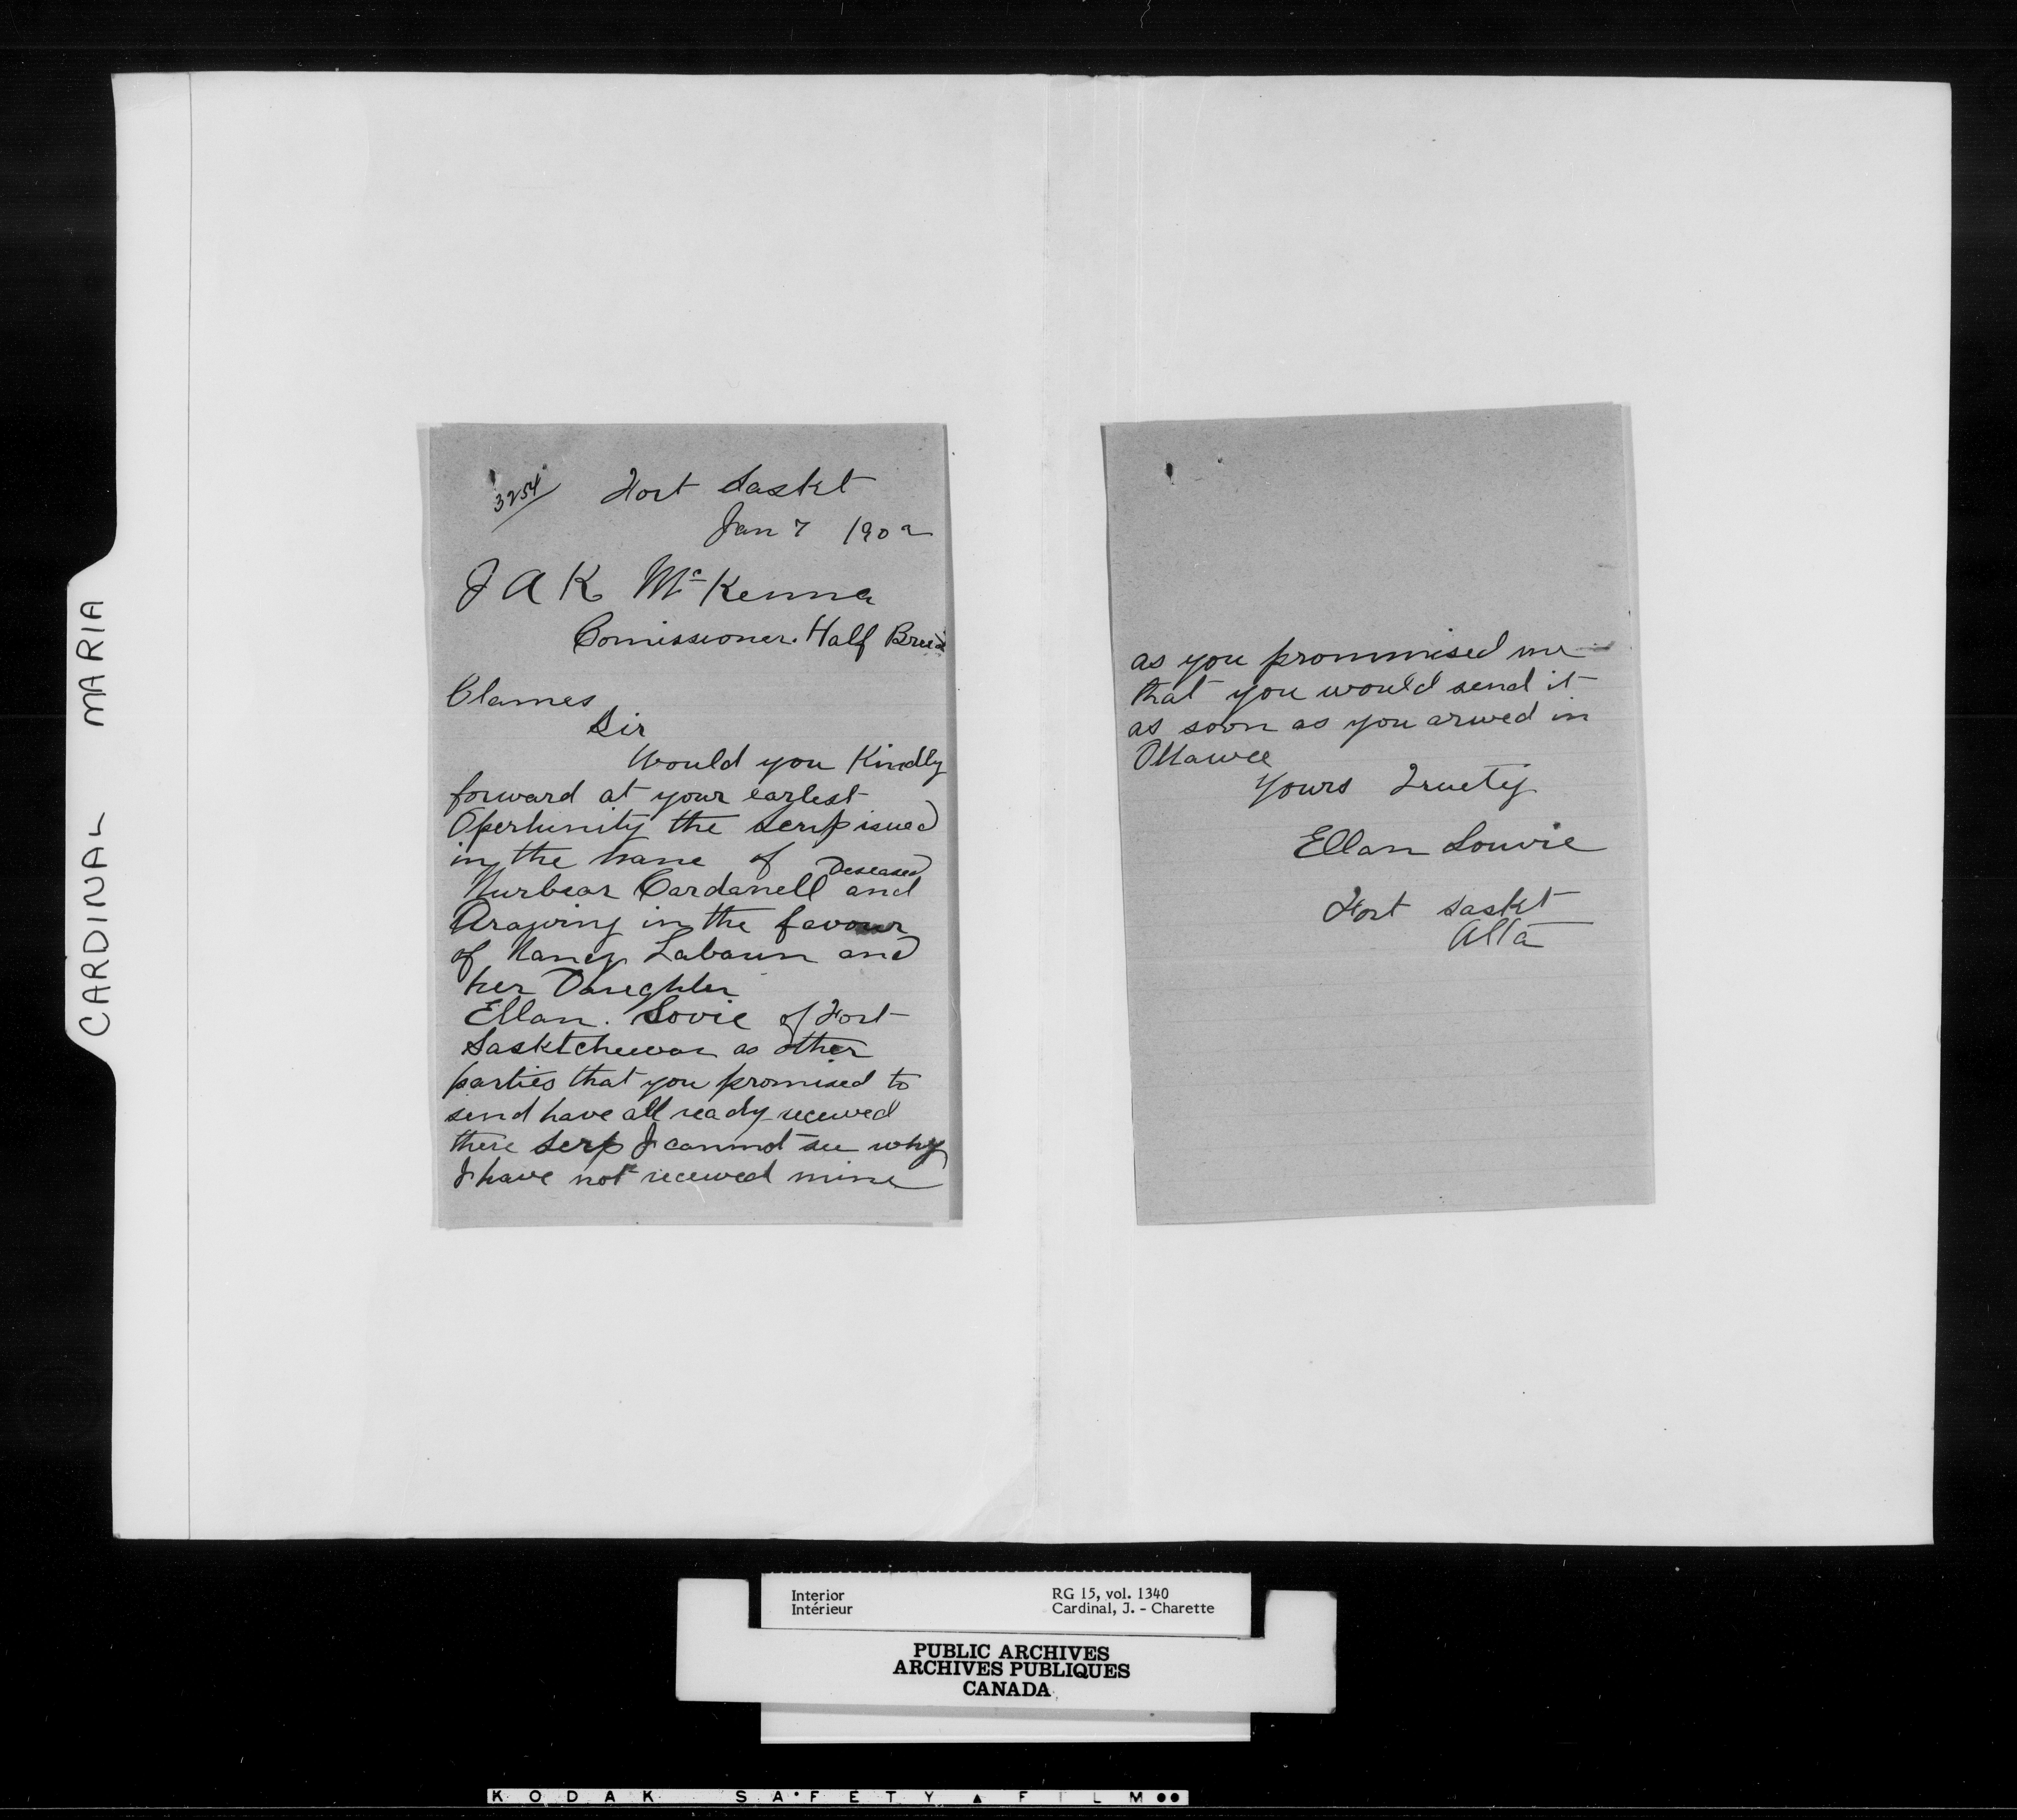 CARDINAL MARIA
3254
Fort Saskt
Jan 7 1902
J A K McKenna
Comissioner. Half Breed
Clames
Sir
Would you Kindly
forward at your earlest
Opertunity the scrip isued
in the name of
Deseased
Cardanell and
in the favour
of Nancy Labaun and
her Daughter
Ellan. Lovie of Fort
Sasktchewan as other
parties that you promised to
send have all ready recewed
there serp I cannot see why
I have not recewed mine
as you prommised me
that you would send it
as soon as you arwed in
Ottawa
Yours Truely
Ellan Louvie
Fort Saskt
Alta
Interior RG 15, vol. 1340
Intérieur Cardinal, J. - Charette
PUBLIC ARCHIVES
ARCHIVES PUBLIQUES
CANADA
KODAK SAFETY FILM